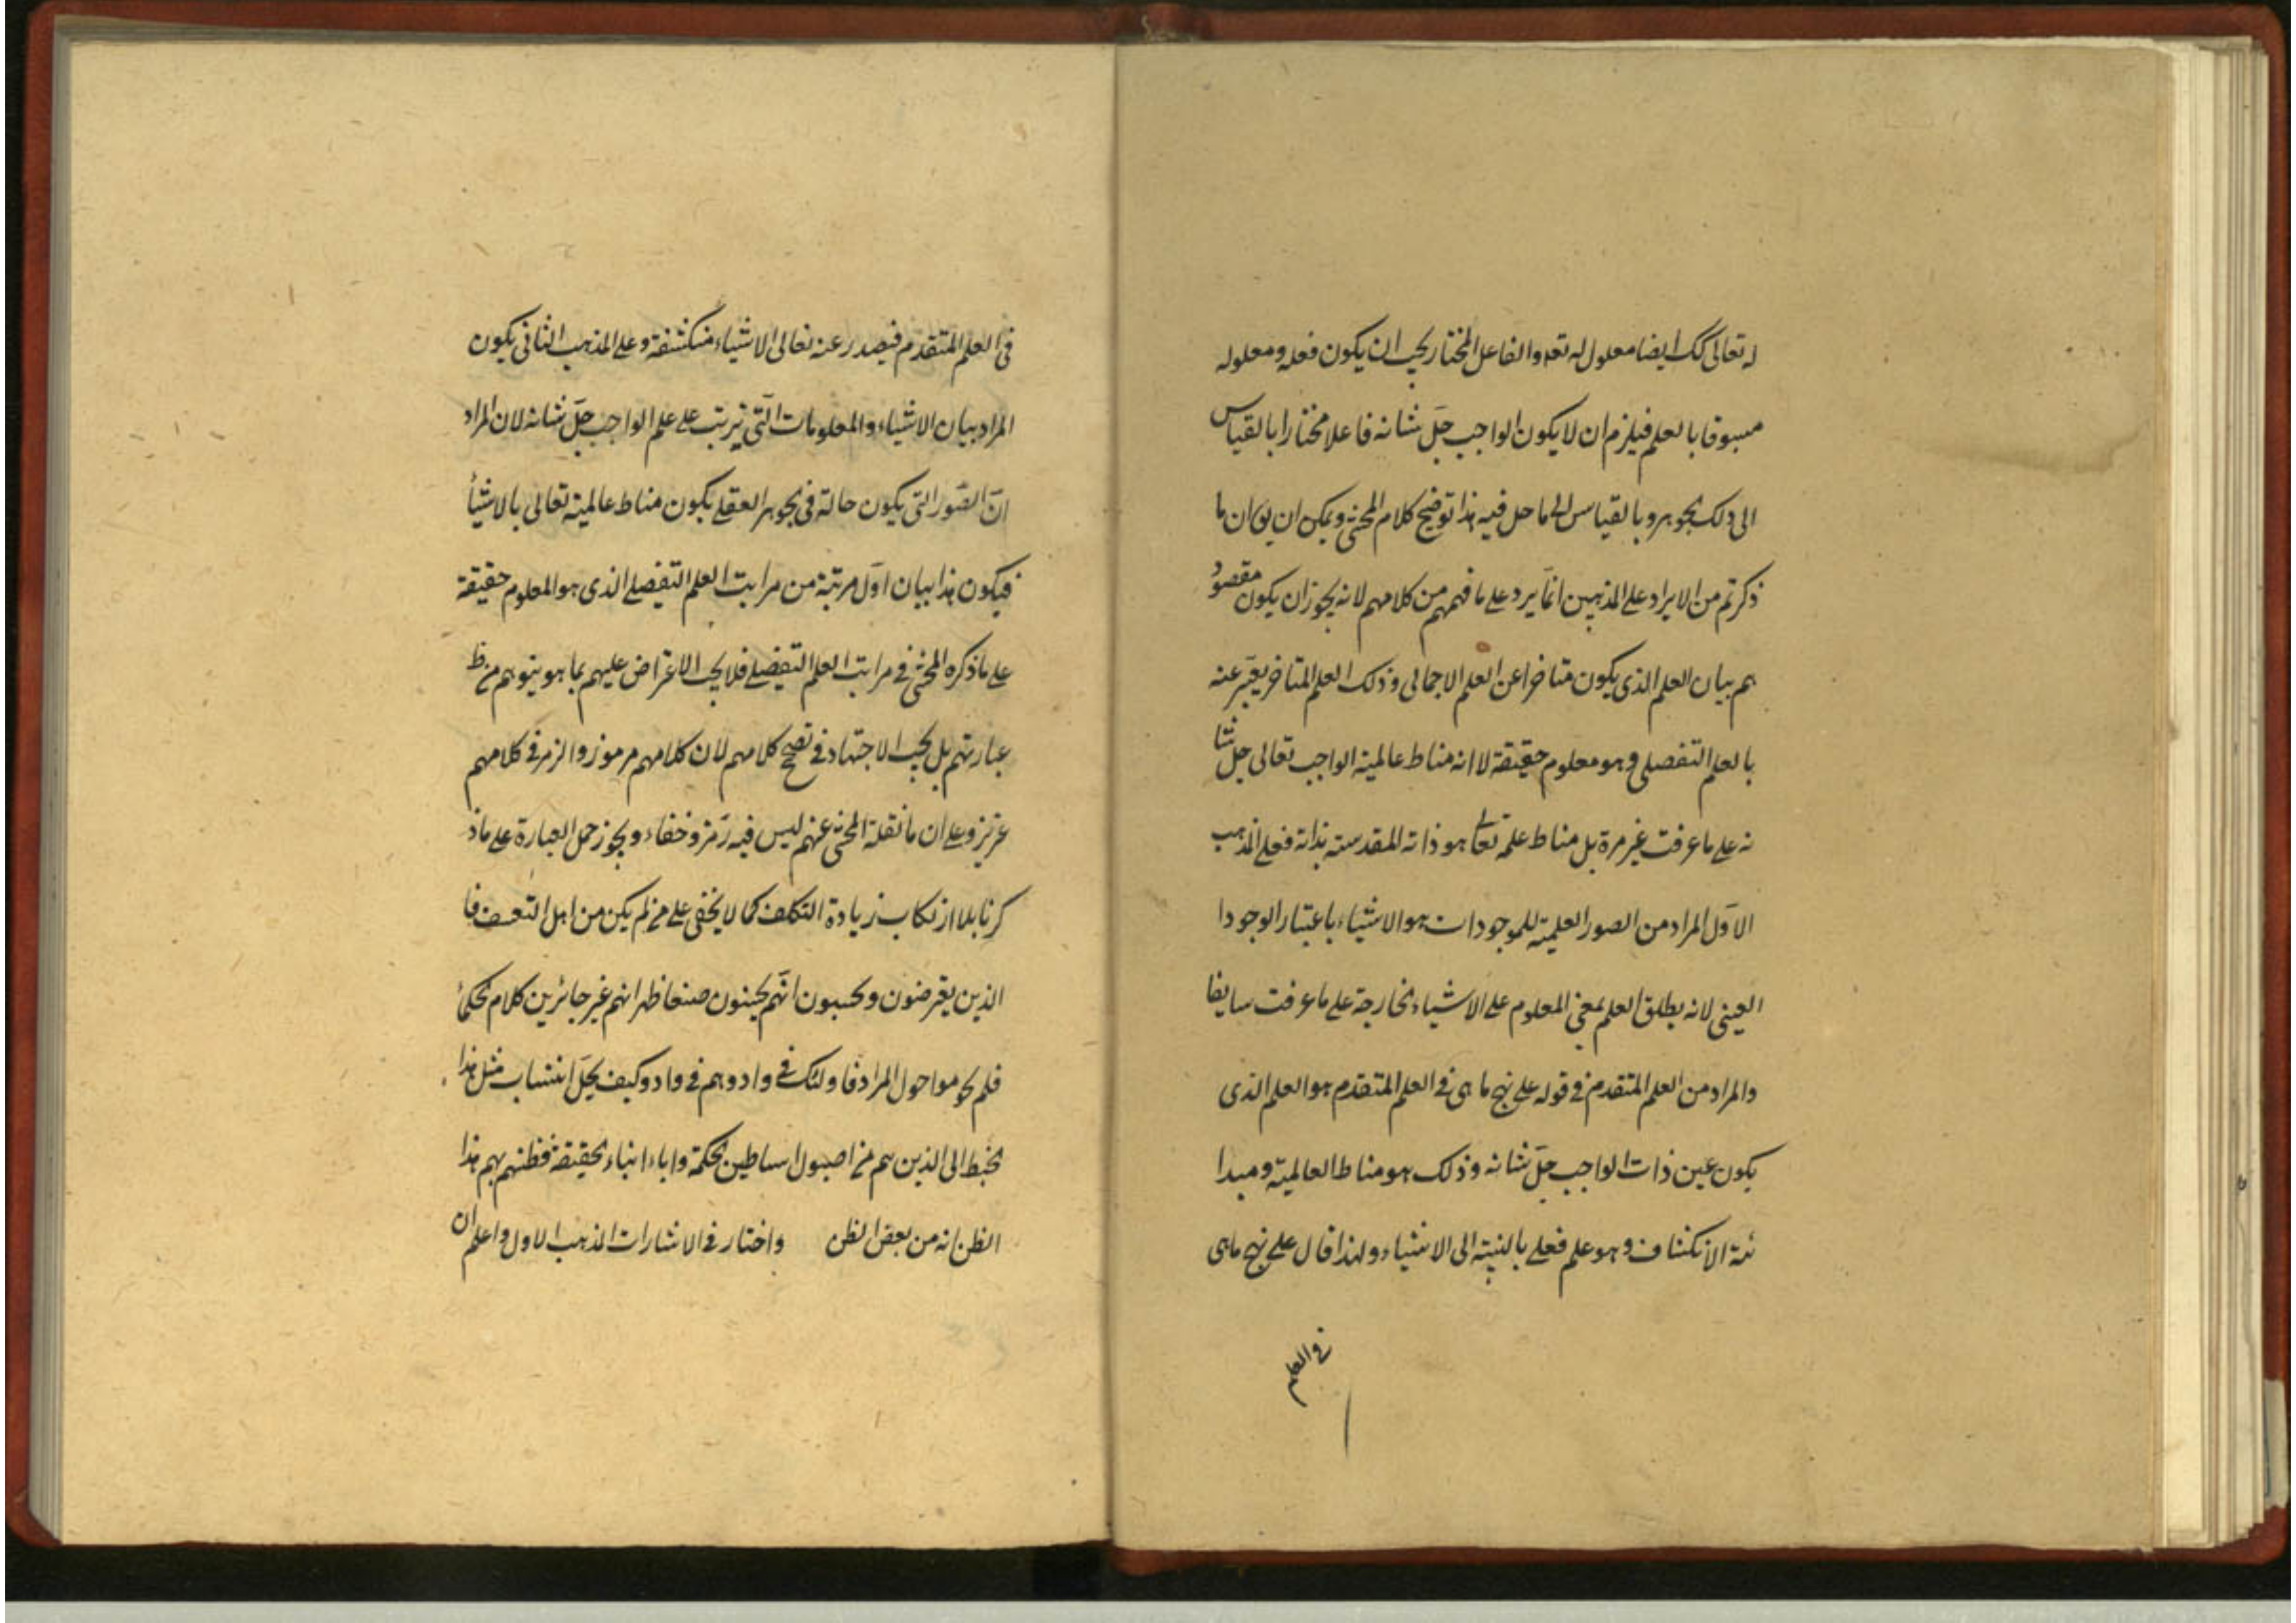 له تعالى كك ايضا معلول له تعه والفاعل المختار يجب ان يكون فعله ومعلوله
مسبوقا بالعلم فيلزم ان لا يكون الواجب جلّ شانه فاعلا مختارا بالقياس
الى ذلك الجوهر وبالقياس الى ما حل فيه هذا توضيح كلام المحشى ويمكن ان يق ان ما
ذكرتم من الايراد على المذهبين انّما يرد على ما فهمهم من كلامهم لانه يجوز ان يكون مقصود
هم بيان العلم الذى يكون متاخرا عن العلم الاجمالى وذلك العلم المتاخر يعبّر عنه
بالعلم التفصلى وهو معلوم حقيقة لا انه مناط عالمية الواجب تعالى جل شا
نه على ما عرفت غير مرة بل مناط علمه تعالى هو ذاته المقدسته بذاته فعلى المذهب
الاوّل المراد من الصور العلميّة للموجودات هو الاشياء باعتبار الوجودا
العينى لانه يطلق العلم بمعنى المعلوم على الاشياء الخارجة على ما عرفت سابقا
والمراد من العلم المتقدم فى قوله على نهج ما هى فى العلم المتقدم هو العلم الذى
يكون عين ذات الواجب جلّ شانه وذلك هو مناط العالميّة ومبدا
ئية الانكشاف وهو علم فعلى بالنسبة الى الاشياء ولهذا قال على نهج ما هى
فى العلم
فى العلم المتقدم فيصدر عنه تعالى الاشياء منكشفة وعلى المذهب الثانى يكون
المراد بيان الاشياء والمعلومات الّتى يترتب على علم الواجب جلّ شانه لان المراد
انّ الصّور التى يكون حالة فى الجوهر العقلى يكون مناط عالمية تعالى بالاشيأ
فيكون هذا بيان اوّل مرتبة من مراتب العلم التفصلى الذى هو المعلوم حقيقة
على ما ذكره المحشى فى مراتب العلم التفصلى فلا يجب الاعتراض عليهم بما هو يتوهم من ظ
عبارتهم بل يجب الاجتهاد فى تصحيح كلامهم لان كلامهم مرموز والرمز فى كلامهم
عزيز وعلى ان ما نقلة المحشى عنهم ليس فيه رَمز وخفاء ويجوز حمل العبارة على ماذ
كرنا بلا ارتكاب زيادة التكلف كما لا يخفى على من لم يكن من اهل التعسف فا
الذين يعترضون ويحسبون انّهم يحسنون صنعا ظهر انهم غير جائزين كلام الحكمأ
فلم يحوموا حول المراد فاولئك فى واد وهم فى واد وكيف يحلّ انتساب مثل هذا
الخبط الى الذين هم من اصول اساطين الحكمة واباء ابناء الحقيقة فظنهم بهم هذا
الظن انه من بعض الظن واختار فى الاشارات المذهب الاول واعلم ان